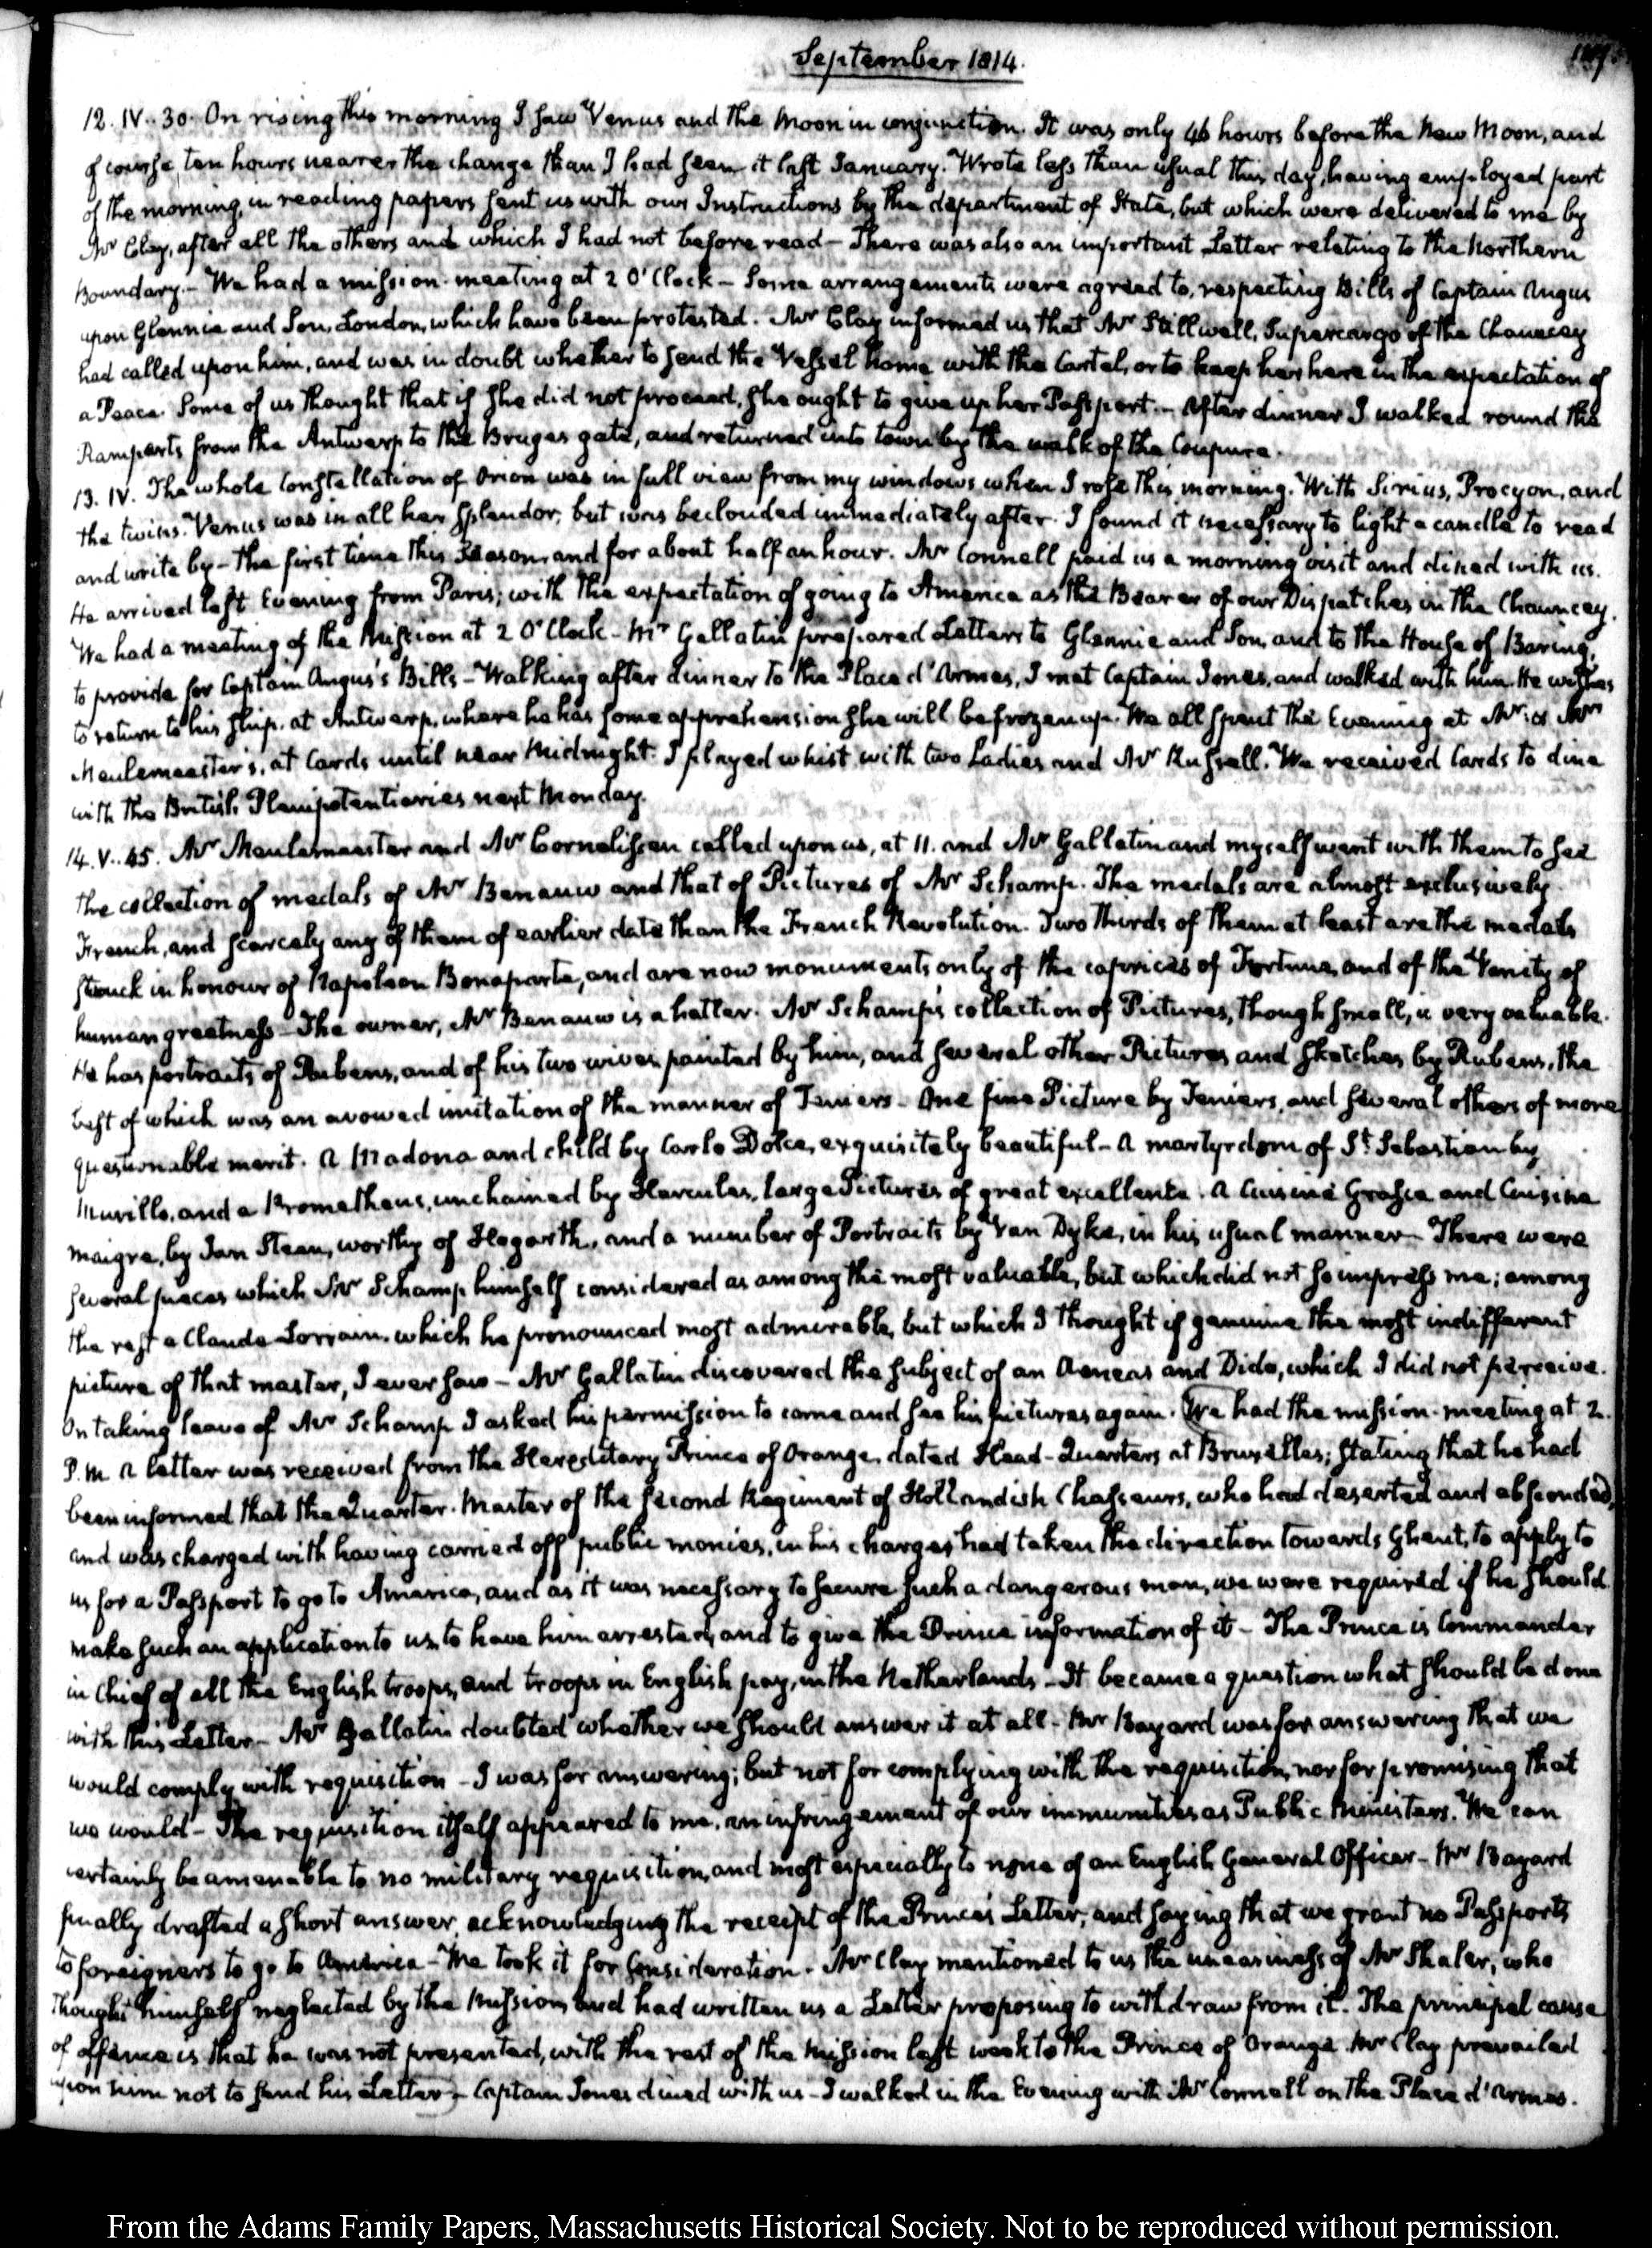 September 1814.
12. IV..30. On rising this morning I saw Venus and the Moon in conjunction. It was only 46 hours before the New Moon, and
of course, ten hours nearer the change than I had seen it last January. Wrote less than usual this day, having employed part
of the morning, in reading papers sent us with our Instructions by the department of State, but which were delivered to me by
Mr Clay, after all the others and which I had not before read - There was also an important Letter relating to the Northern
Boundary. - We had a mission-meeting at 2 O'Clock - Some arrangements were agreed to, respecting Bills of Captain Angus
upon Glennie and Son, London, which have been protested. Mr Clay informed us that Mr Stillwell, Supercargo of the Chauncey
had called upon him, and was in doubt whether to send the Vessel home with the Cartel, or to keep her here in the expectation of
a Peace. Some of us thought that if she did not proceed, she ought to give up her Passport. - After dinner I walked round the
Ramparts from the Antwerp to the Bruges gate, and returned into town by the walk of the Coupure.
13. IV. The whole Constellation of Orion was in full view from my windows when I rose this morning. With Sirius, Procyon, and
the twins. Venus was in all her splendor; but was beclouded immediately after. I found it necessary to light a candle to read
and write by - the first time this Season, and for about half an hour. Mr Connell paid us a morning visit and dined with us.
He arrived last Evening from Paris; with the expectation of going to America as the Bearer of our Dispatches in the Chauncey.
We had a meeting of the Mission at 2 O'Clock - Mr Gallatin prepared Letters to Glennie and Son, and to the House of Baring,
to provide for Captain Angus's Bills - Walking after dinner to the Place d'Armes, I met Captain Jones, and walked with him. He wishes
to return to his ship at Antwerp, where he has some apprehension she will be frozen up. We all spent the Evening at Mr & Mrs
Meulemeester's, at Cards until near Midnight. I played whist with two Ladies and Mr Russell. We received Cards to dine
with the British Plenipotentiaries next Monday.
14. V..45. Mr Meulemeester and Mr Cornelissen called upon us, at 11. and Mr Gallatin and myself went with them to see
the collection of medals of Mr Benauw and that of Pictures of Mr Schamp. The medals are almost exclusively
French, and scarcely any of them of earlier date than the French Revolution. Two thirds of them at least are the medals
struck in honour of Napoleon Bonaparte, and are now monuments only of the caprices of Fortune, and of the Vanity of
human greatness - The owner, Mr Benauw is a hatter. Mr Schamp's collection of Pictures, though small, is very valuable.
He has portraits of Rubens, and of his two wives painted by him, and several other Pictures and sketches by Rubens, the
best of which was an avowed imitation of the manner of Teniers - One fine Picture by Teniers, and several others of more
questionable merit. A Madona and child by Carlo Dolce, exquisitely beautiful - A martyrdom of St Sebastian by
Murillo, and a Prometheus, unchained by Hercules, large Pictures of great excellence. A Cuisine Grasse and Cuisine
maigre, by Jan Steen, worthy of Hogarth, and a number of Portraits by Van Dyke, in his usual manner - There were
several pieces which Mr Schamp himself considered as among the most valuable, but which did not so impress me; among
the rest a Claude Lorrain, which he pronounced most admirable, but which I thought if genuine the most indifferent
picture of that master, I ever saw - Mr Gallatin discovered the subject of an Aeneas and Dido, which I did not perceive.
On taking leave of Mr Schamp I asked his permission to come and see his pictures again. We had the mission-meeting at 2.
P.M. A letter was received from the Hereditary Prince of Orange, dated Head-Quarters at Bruxelles; stating that he had
been informed that the Quarter-Master of the second Regiment of Hollandish Chasseurs, who had deserted and absconded,
and was charged with having carried off public monies, in his charges had taken the direction towards Ghent, to apply to
us for a Passport to go to America, and as it was necessary to secure such a dangerous man, we were required if he should
make such an application to us, to have him arrested, and to give the Prince information of it - The Prince is Commander
in Chief of all the English troops, and troops in English pay, in the Netherlands - It became a question what should be done
with this Letter - Mr Gallatin doubted whether we should answer it at all - Mr Bayard was for answering that we
would comply with requisition - I was for answering; but not for complying with the requisition, nor for promising that
we would - The requisition itself appeared to me, an infringement of our immunities as Public Ministers. We can
certainly be amenable to no military requisition, and most especially to none of an English General Officer - Mr Bayard
finally drafted a short answer, acknowledging the receipt of the Prince's Letter, and saying that we grant no Passports
to foreigners to go to America - We took it for consideration. Mr Clay mentioned to us the uneasiness of Mr Shaler, who
thought himself neglected by the Mission, and had written us a Letter proposing to withdraw from it. The principal cause
of offence is that he was not presented, with the rest of the Mission last week to the Prince of Orange. Mr Clay prevailed
upon him not to send his Letter - Captain Jones dined with us - I walked in the Evening with Mr Connell on the Place d'Armes.
From the Adams Family Papers, Massachusetts Historical Society. Not to be reproduced without permission.